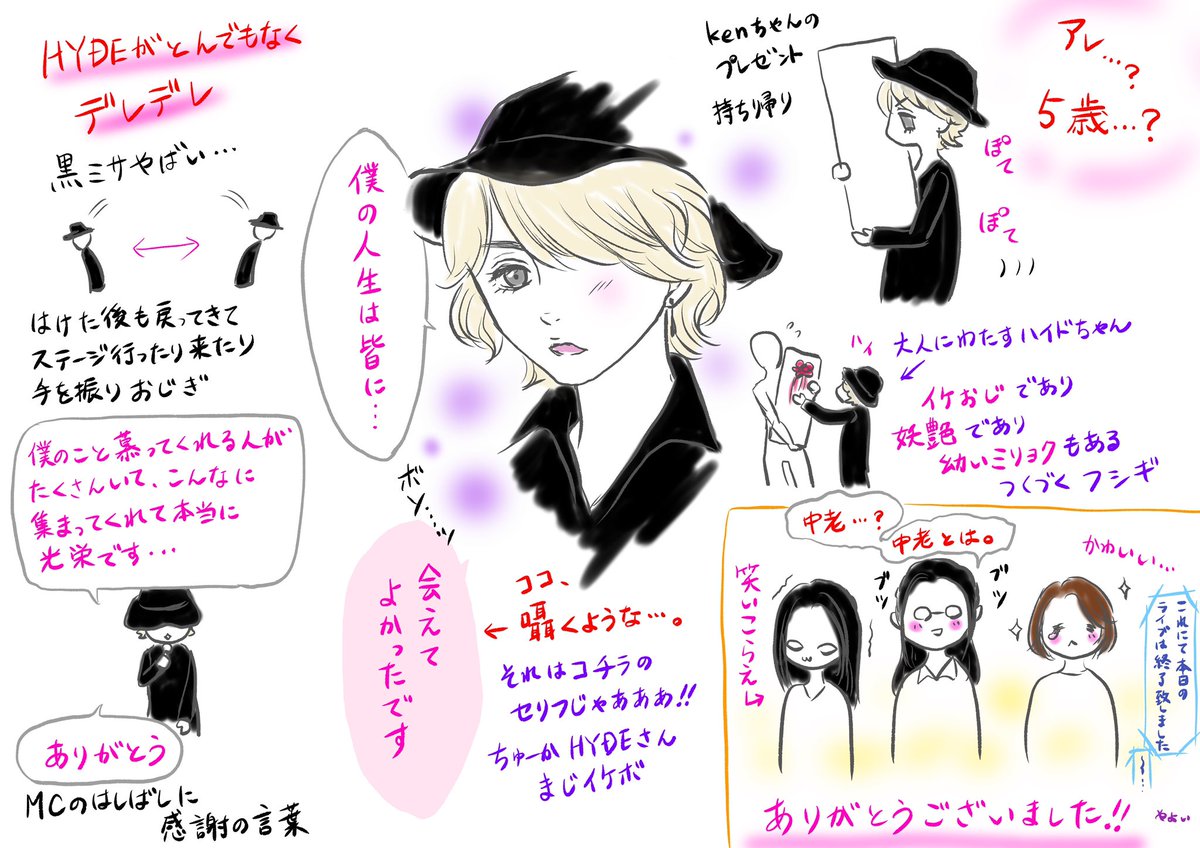 HYDEがとんでもなく
デレデレ
黒ミサやばい…
はけた後も戻ってきて
ステージ行ったり来たり
手を振りおじぎ
僕のこと慕ってくれる人が
たくさんいて、こんなに
集まってくれて本当に
光栄です…
ありがとう
MCのはしばしに
感謝の言葉
僕の人生は皆に…
ボソ…ッ
会えて
よかったです
ココ、
← 囁くような…。
それはコチラの
セリフじゃあああ!!
ちゅーかHYDEさん
まじイケボ
kenちゃんの
プレゼント
持ち帰り
アレ…?
5歳…?
ぽて
ぽて
ハイ
大人にわたすハイドちゃん
イケおじであり
妖艶であり
幼いミリョクもある
つくづくフシギ
中老…?
中老とは。
ブッ
ブッ
笑いこらえ→
かわいい…
これにて本日の
ライブは終了致しました
ありがとうございました!!
やよい